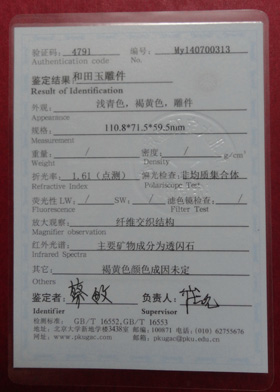 验证码: 4791 编号: My140700313
Authentication code No.
鉴定结果: 和田玉雕件
Result of Identification
外观: 浅青色，褐黄色，雕件
Appearance
规格: 110.8*71.5*59.5mm
Measurement
重量: / 密度: / g/cm³
Weight Density
折光率: 1.61 (点测) 偏光检查: 非均质集合体
Refractive Index Polariscope Test
荧光性 LW: / SW: / 滤色镜检查: /
Fluorescence Filter Test
放大观察: 纤维交织结构
Magnifier observation
红外光谱: 主要矿物成分为透闪石
Infrared Spectra
其它: 褐黄色颜色成因未定
Others
鉴定者: 蔡敏 负责人:
Identifier Supervisor
检测标准: GB/T 16552, GB/T 16553
地址: 北京大学新地学楼3438室 邮编: 100871 电话: (010) 62755676
网址: www.pkugac.com 邮箱: pkugac@pku.edu.cn